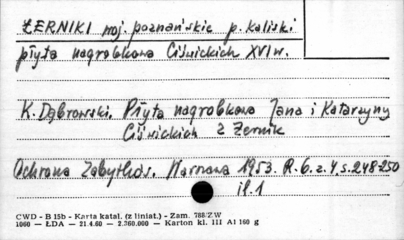 ŻERNIKI woj. poznańskie p. kaliski
płyta nagrobkowa Ciświckich XVI w.
K. Dąbrowski. Płyta nagrobkowa Jana i Katarzyny
Ciświckich z Żernik
Ochrona Zabytków. Warszawa 1953. R. 6. z. 4 s. 248-250
il. 1
CWD - B 15b - Karta katal. (z liniat.) - Zam. 788/ZW
1000 — ŁDA — 21.4.60 — 2.360.000 — Karton kl. III A1 160 g